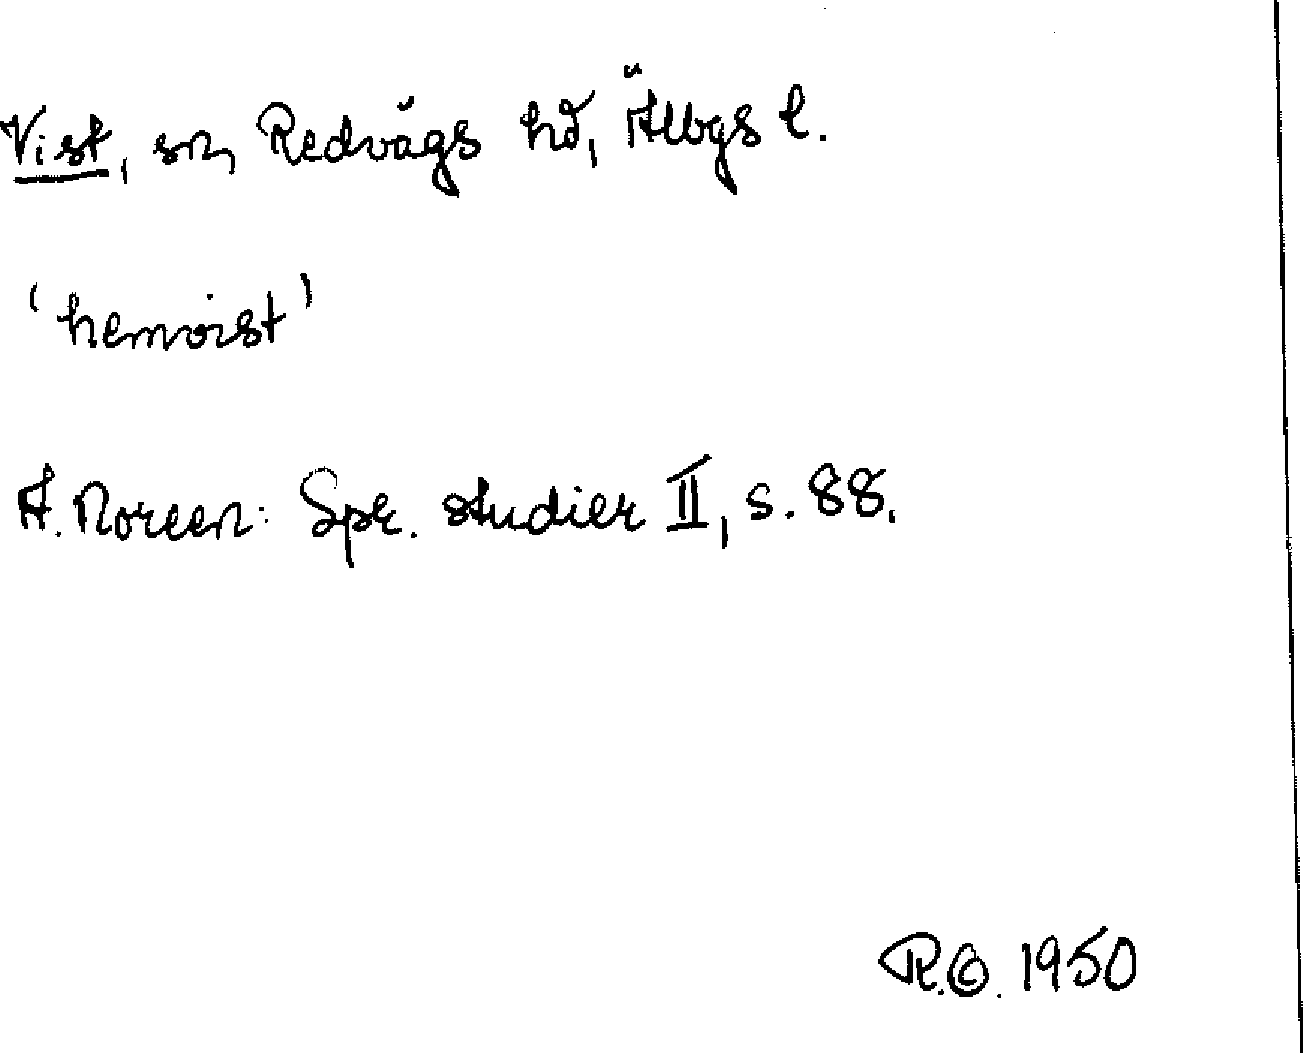 Vist, sn, Redvägs hd, Älvbgs l.
'hemvist'
A. Noreen: Spr. studier II, s. 88.
R.G. 1950